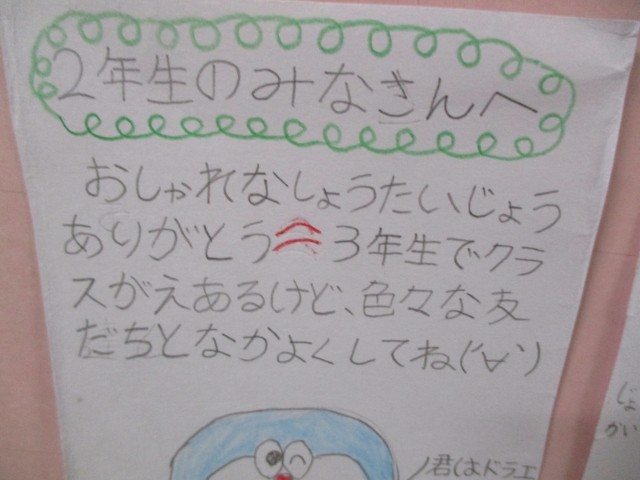 2年生のみなさんへ
おしゃれなしょうたいじょう
ありがとう 3年生でクラ
スがえあるけど、色々な友
だちとなかよくしてね(´∀`)
ノ君はドラエ
じょ
かい